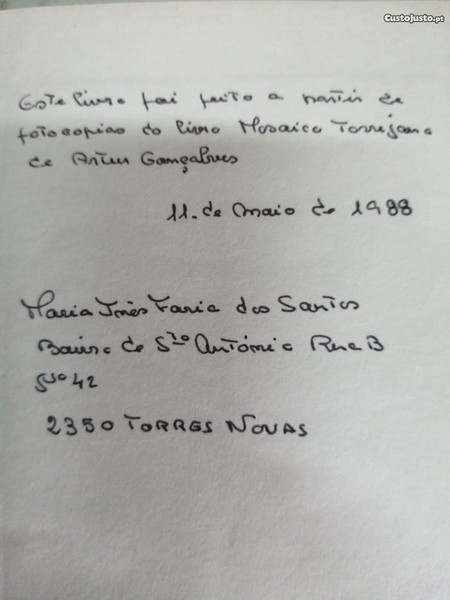 CustoJusto.pt
Este livro foi feito a partir de
fotocopias do livro Mosaico Torrejano
de Artur Gonçalves
11. de Maio de 1988
Maria Inês Faria dos Santos
Bairro de Sto António Rua B
Nº 42
2350 TORRES NOVAS